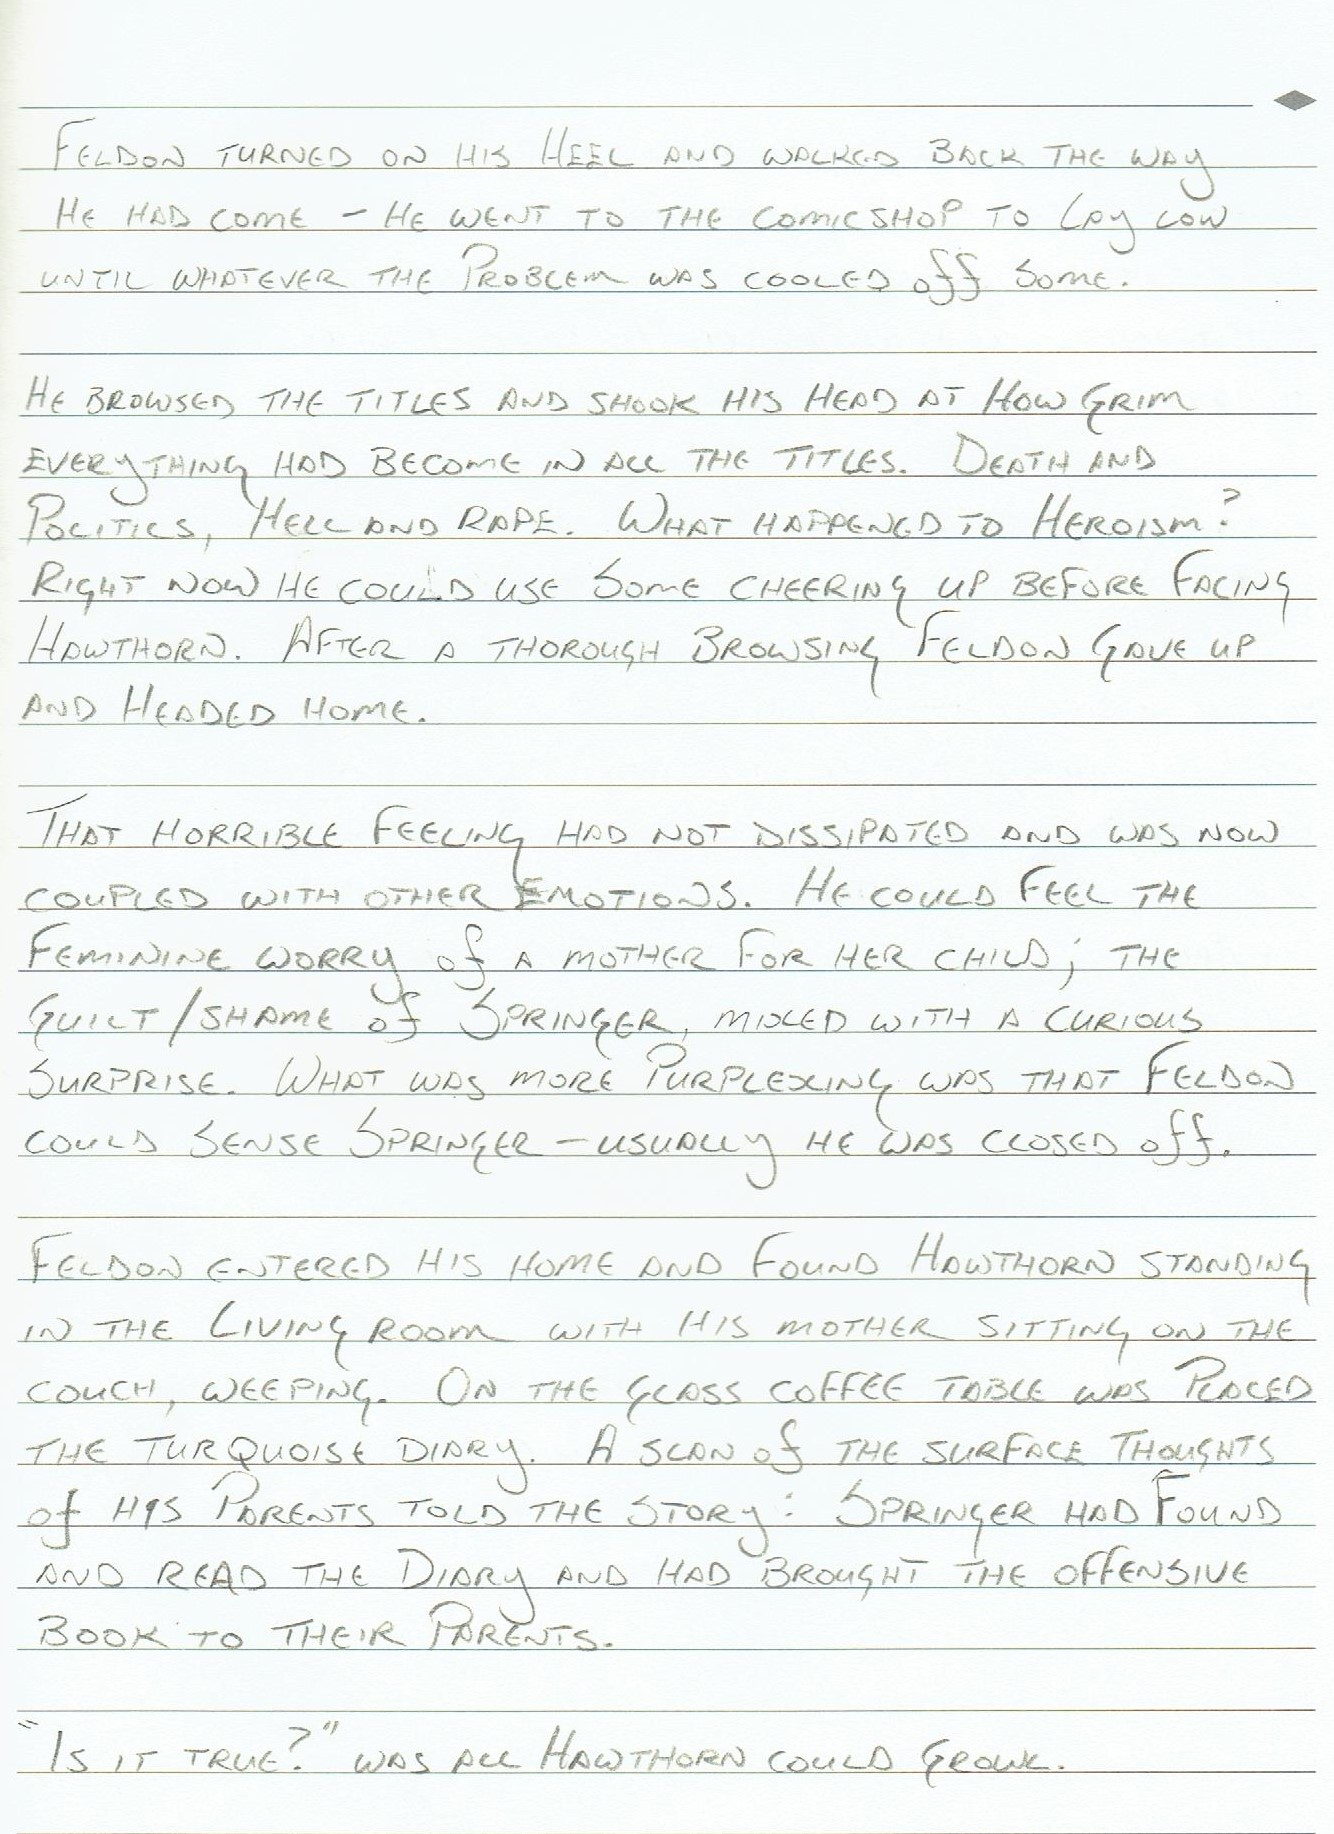 Feldon turned on his heel and walked back the way
he had come - he went to the comicshop to lay low
until whatever the problem was cooled off some.
He browsed the titles and shook his head at how grim
everything had become in all the titles. Death and
politics, hell and rape. What happened to heroism?
Right now he could use some cheering up before facing
Hawthorn. After a thorough browsing Feldon gave up
and headed home.
That horrible feeling had not dissipated and was now
coupled with other emotions. He could feel the
feminine worry of a mother for her child; the
guilt/shame of Springer, mixed with a curious
surprise. What was more purplexing was that Feldon
could sense Springer - usually he was closed off.
Feldon entered his home and found Hawthorn standing
in the living room with his mother sitting on the
couch, weeping. On the glass coffee table was placed
the turquoise diary. A scan of the surface thoughts
of his parents told the story: Springer had found
and read the diary and had brought the offensive
book to their parents.
"Is it true?" was all Hawthorn could growl.